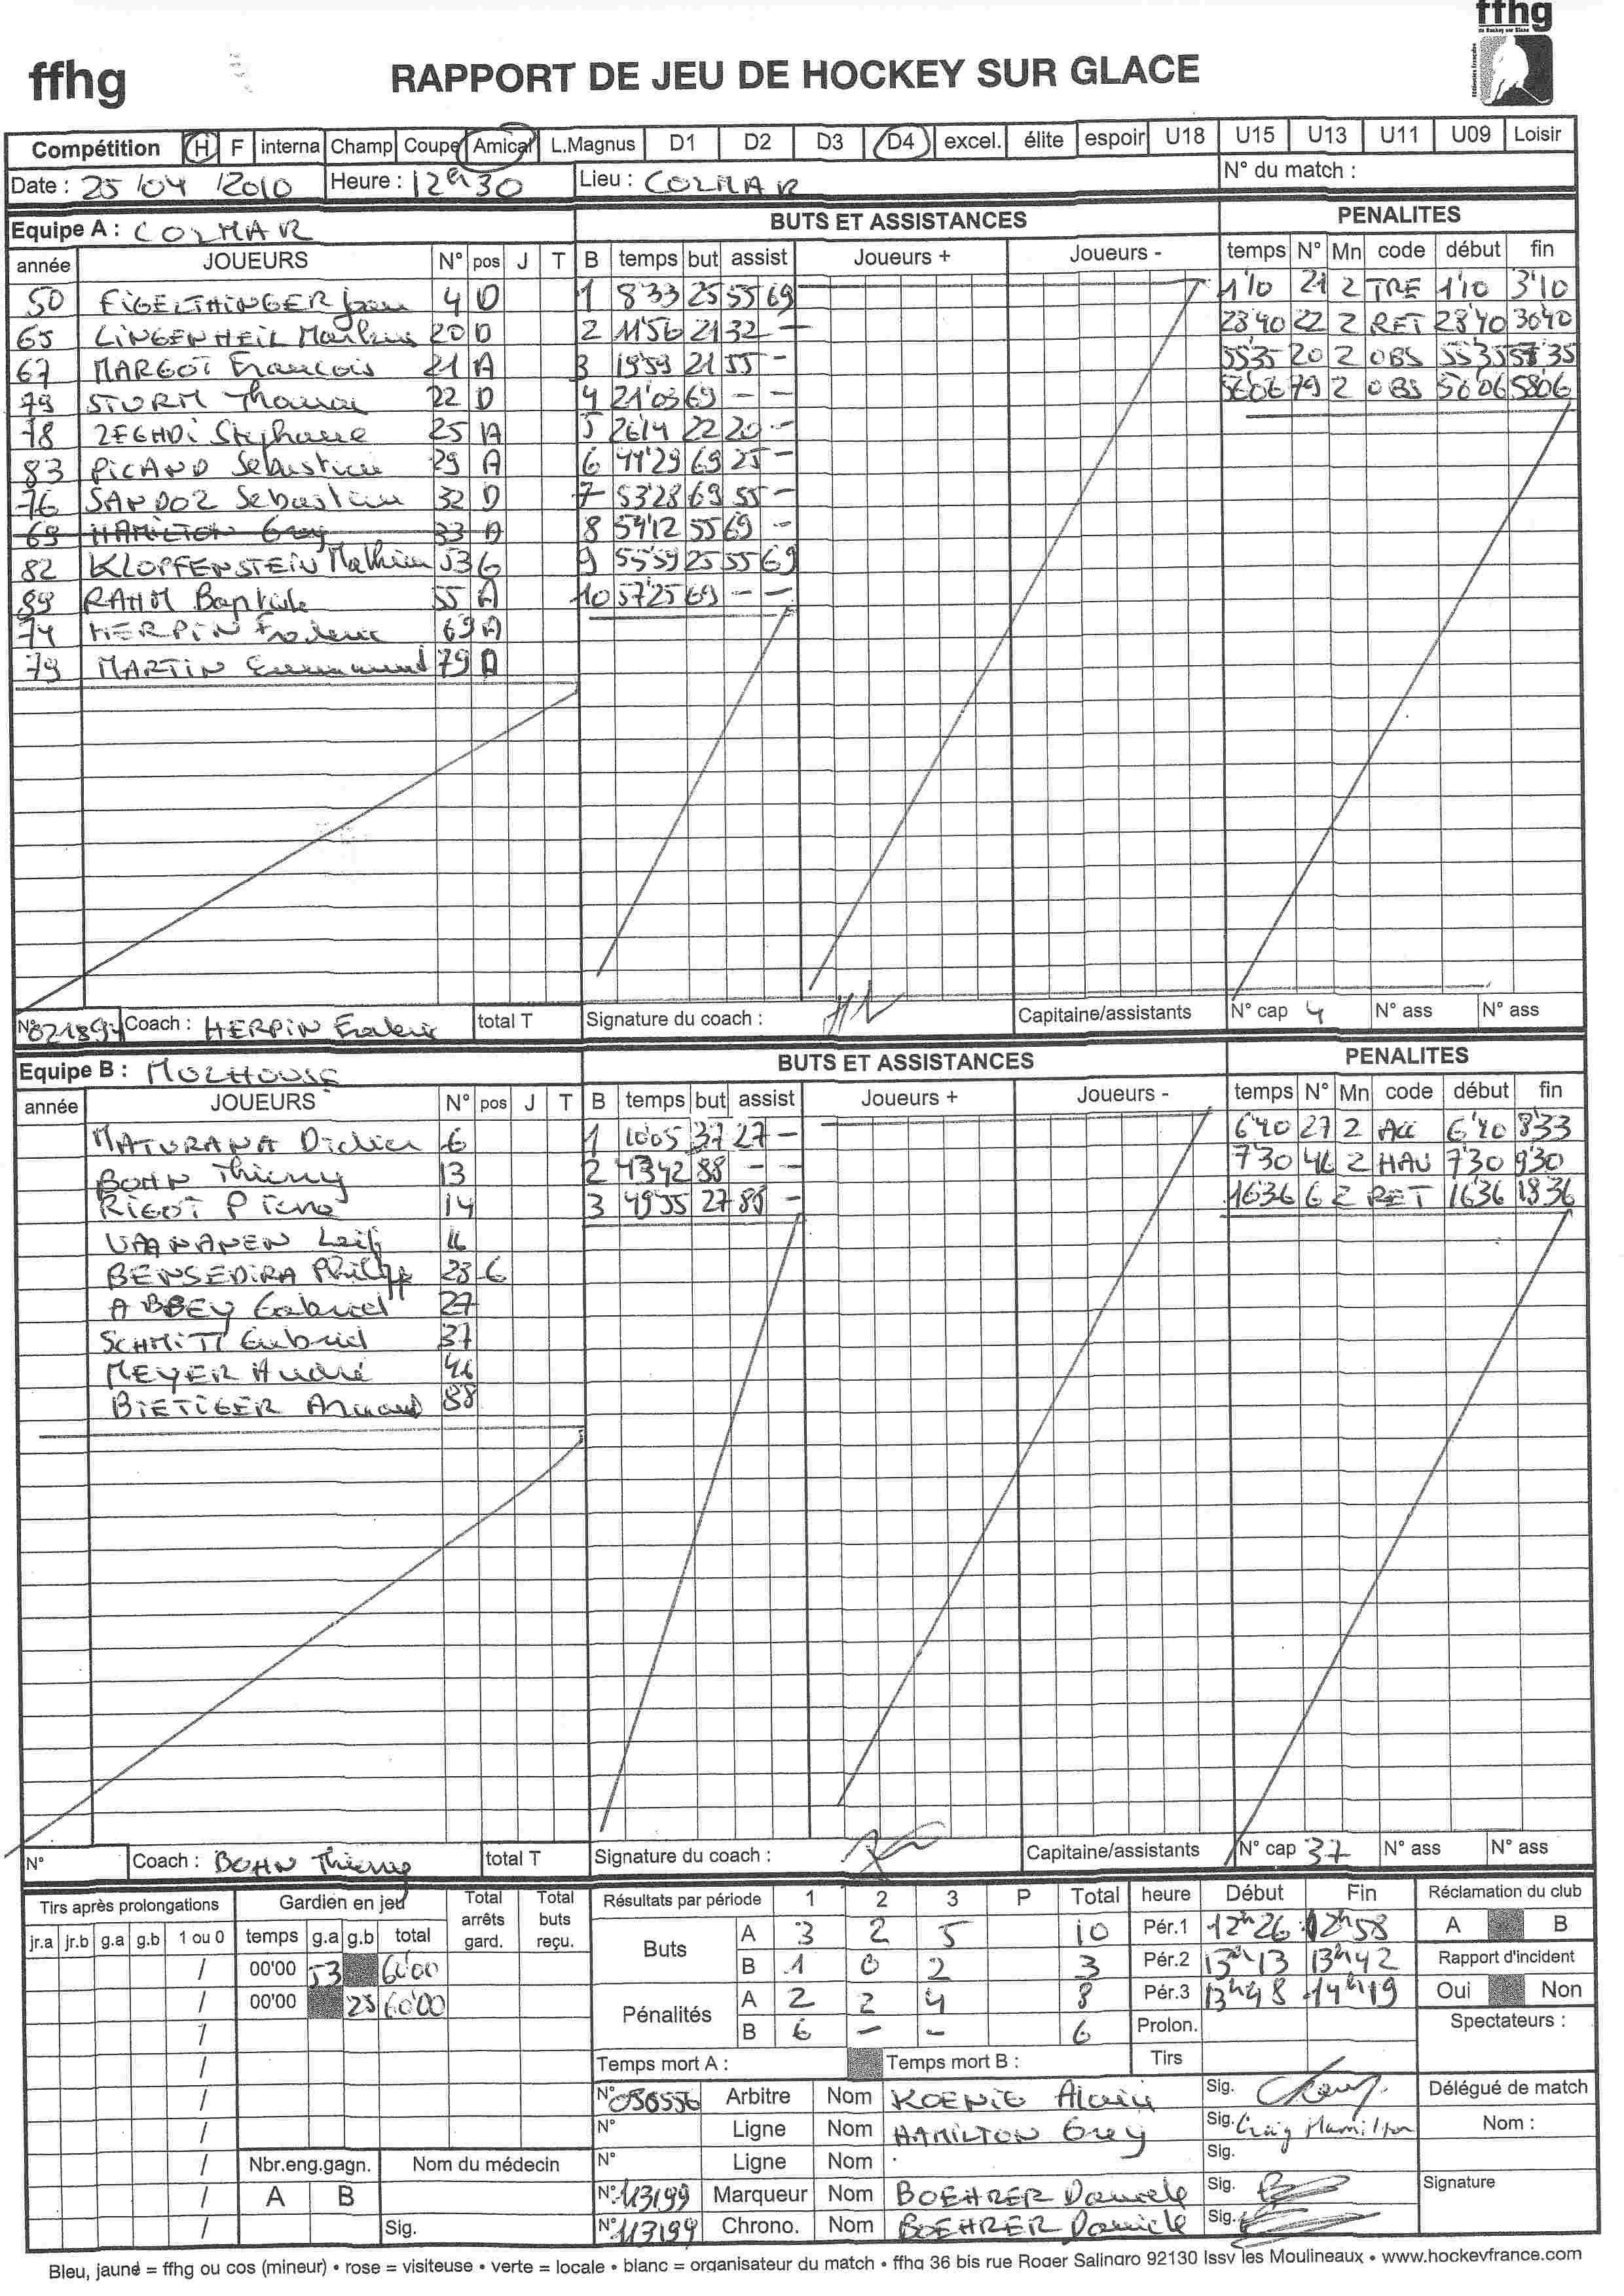 ffhg
ffhg
RAPPORT DE JEU DE HOCKEY SUR GLACE
Compétition H F interna Champ Coupe Amical L.Magnus D1 D2 D3 D4 excel. élite espoir U18 U15 U13 U11 U09 Loisir
Date : 25/04/2010 Heure : 12h30 Lieu : COLMAR N° du match :
Equipe A : COLMAR BUTS ET ASSISTANCES PENALITES
année JOUEURS N° pos J T B temps but assist Joueurs + Joueurs - temps N° Mn code début fin
50 FIGELTHINGER Jean 4 D 1 8'33 25 55 69 1'10 21 2 TRE 1'10 3'10
65 LINGENHEIL Markus 20 D 2 11'56 21 32 – 28'40 22 2 RET 28'40 30'40
67 MARGOT Francois 21 A 3 19'59 21 55 – 55'35 20 2 OBS 55'35 57'35
79 STURM Thomas 22 D 4 21'03 69 – – 56'06 79 2 OBS 56'06 58'06
78 ZEGHDI Stephane 25 A 5 26'14 22 20 –
83 PICAND Sebastien 29 A 6 44'29 69 25 –
76 SANDOZ Sebastien 32 D 7 53'28 69 55 –
69 HAMILTON Grey 33 A 8 54'12 55 69 –
82 KLOPFENSTEIN Mathieu 53 G 9 55'59 25 55 69
89 RAHM Baptiste 55 A 10 57'25 69 – –
74 HERPIN Frederic 69 A
79 MARTIN Emmanuel 79 D
N° 021894 Coach : HERPIN Frederic total T Signature du coach : Capitaine/assistants N° cap 4 N° ass N° ass
Equipe B : MULHOUSE BUTS ET ASSISTANCES PENALITES
année JOUEURS N° pos J T B temps but assist Joueurs + Joueurs - temps N° Mn code début fin
MATURANA Didier 6 1 10'05 37 27 – 6'40 27 2 ACC 6'40 8'33
BOHN Thierry 13 2 43'42 88 – – 7'30 46 2 HAU 7'30 9'30
RIGOT Pierre 14 3 49'55 27 88 – 16'36 6 2 RET 16'36 18'36
VAANANEN Leif 16
BENSEDIRA Philipp 23 G
ABBEY Gabriel 27
SCHMITT Gabriel 37
MEYER André 46
BIETIGER Arnaud 88
N° Coach : BOHN Thierry total T Signature du coach : Capitaine/assistants N° cap 37 N° ass N° ass
Tirs après prolongations Gardien en jeu Total arrêts gard. Total buts reçu. Résultats par période 1 2 3 P Total heure Début Fin Réclamation du club
jr.a jr.b g.a g.b 1 ou 0 temps g.a g.b total Buts A 3 2 5 10 Pér.1 12h26 12h58 A B
/ 00'00 53 60'00 B 1 0 2 3 Pér.2 13h13 13h42 Rapport d'incident
/ 00'00 23 60'00 Pénalités A 2 2 4 8 Pér.3 13h48 14h19 Oui Non
/ B 6 – – 6 Prolon. Spectateurs :
/ Temps mort A : Temps mort B : Tirs
/ N° 050556 Arbitre Nom KOENIG Alain Sig. Délégué de match
/ N° Ligne Nom HAMILTON Grey Sig. Craig Hamilton Nom :
/ Nbr.eng.gagn. Nom du médecin N° Ligne Nom Sig.
/ A B N° 113199 Marqueur Nom BOEHRER Daniele Sig. Signature
/ Sig. N° 113199 Chrono. Nom BOEHRER Daniele Sig.
Bleu, jaune = ffhg ou cos (mineur) • rose = visiteuse • verte = locale • blanc = organisateur du match • ffhg 36 bis rue Roger Salingro 92130 Issy les Moulineaux • www.hockeyfrance.com